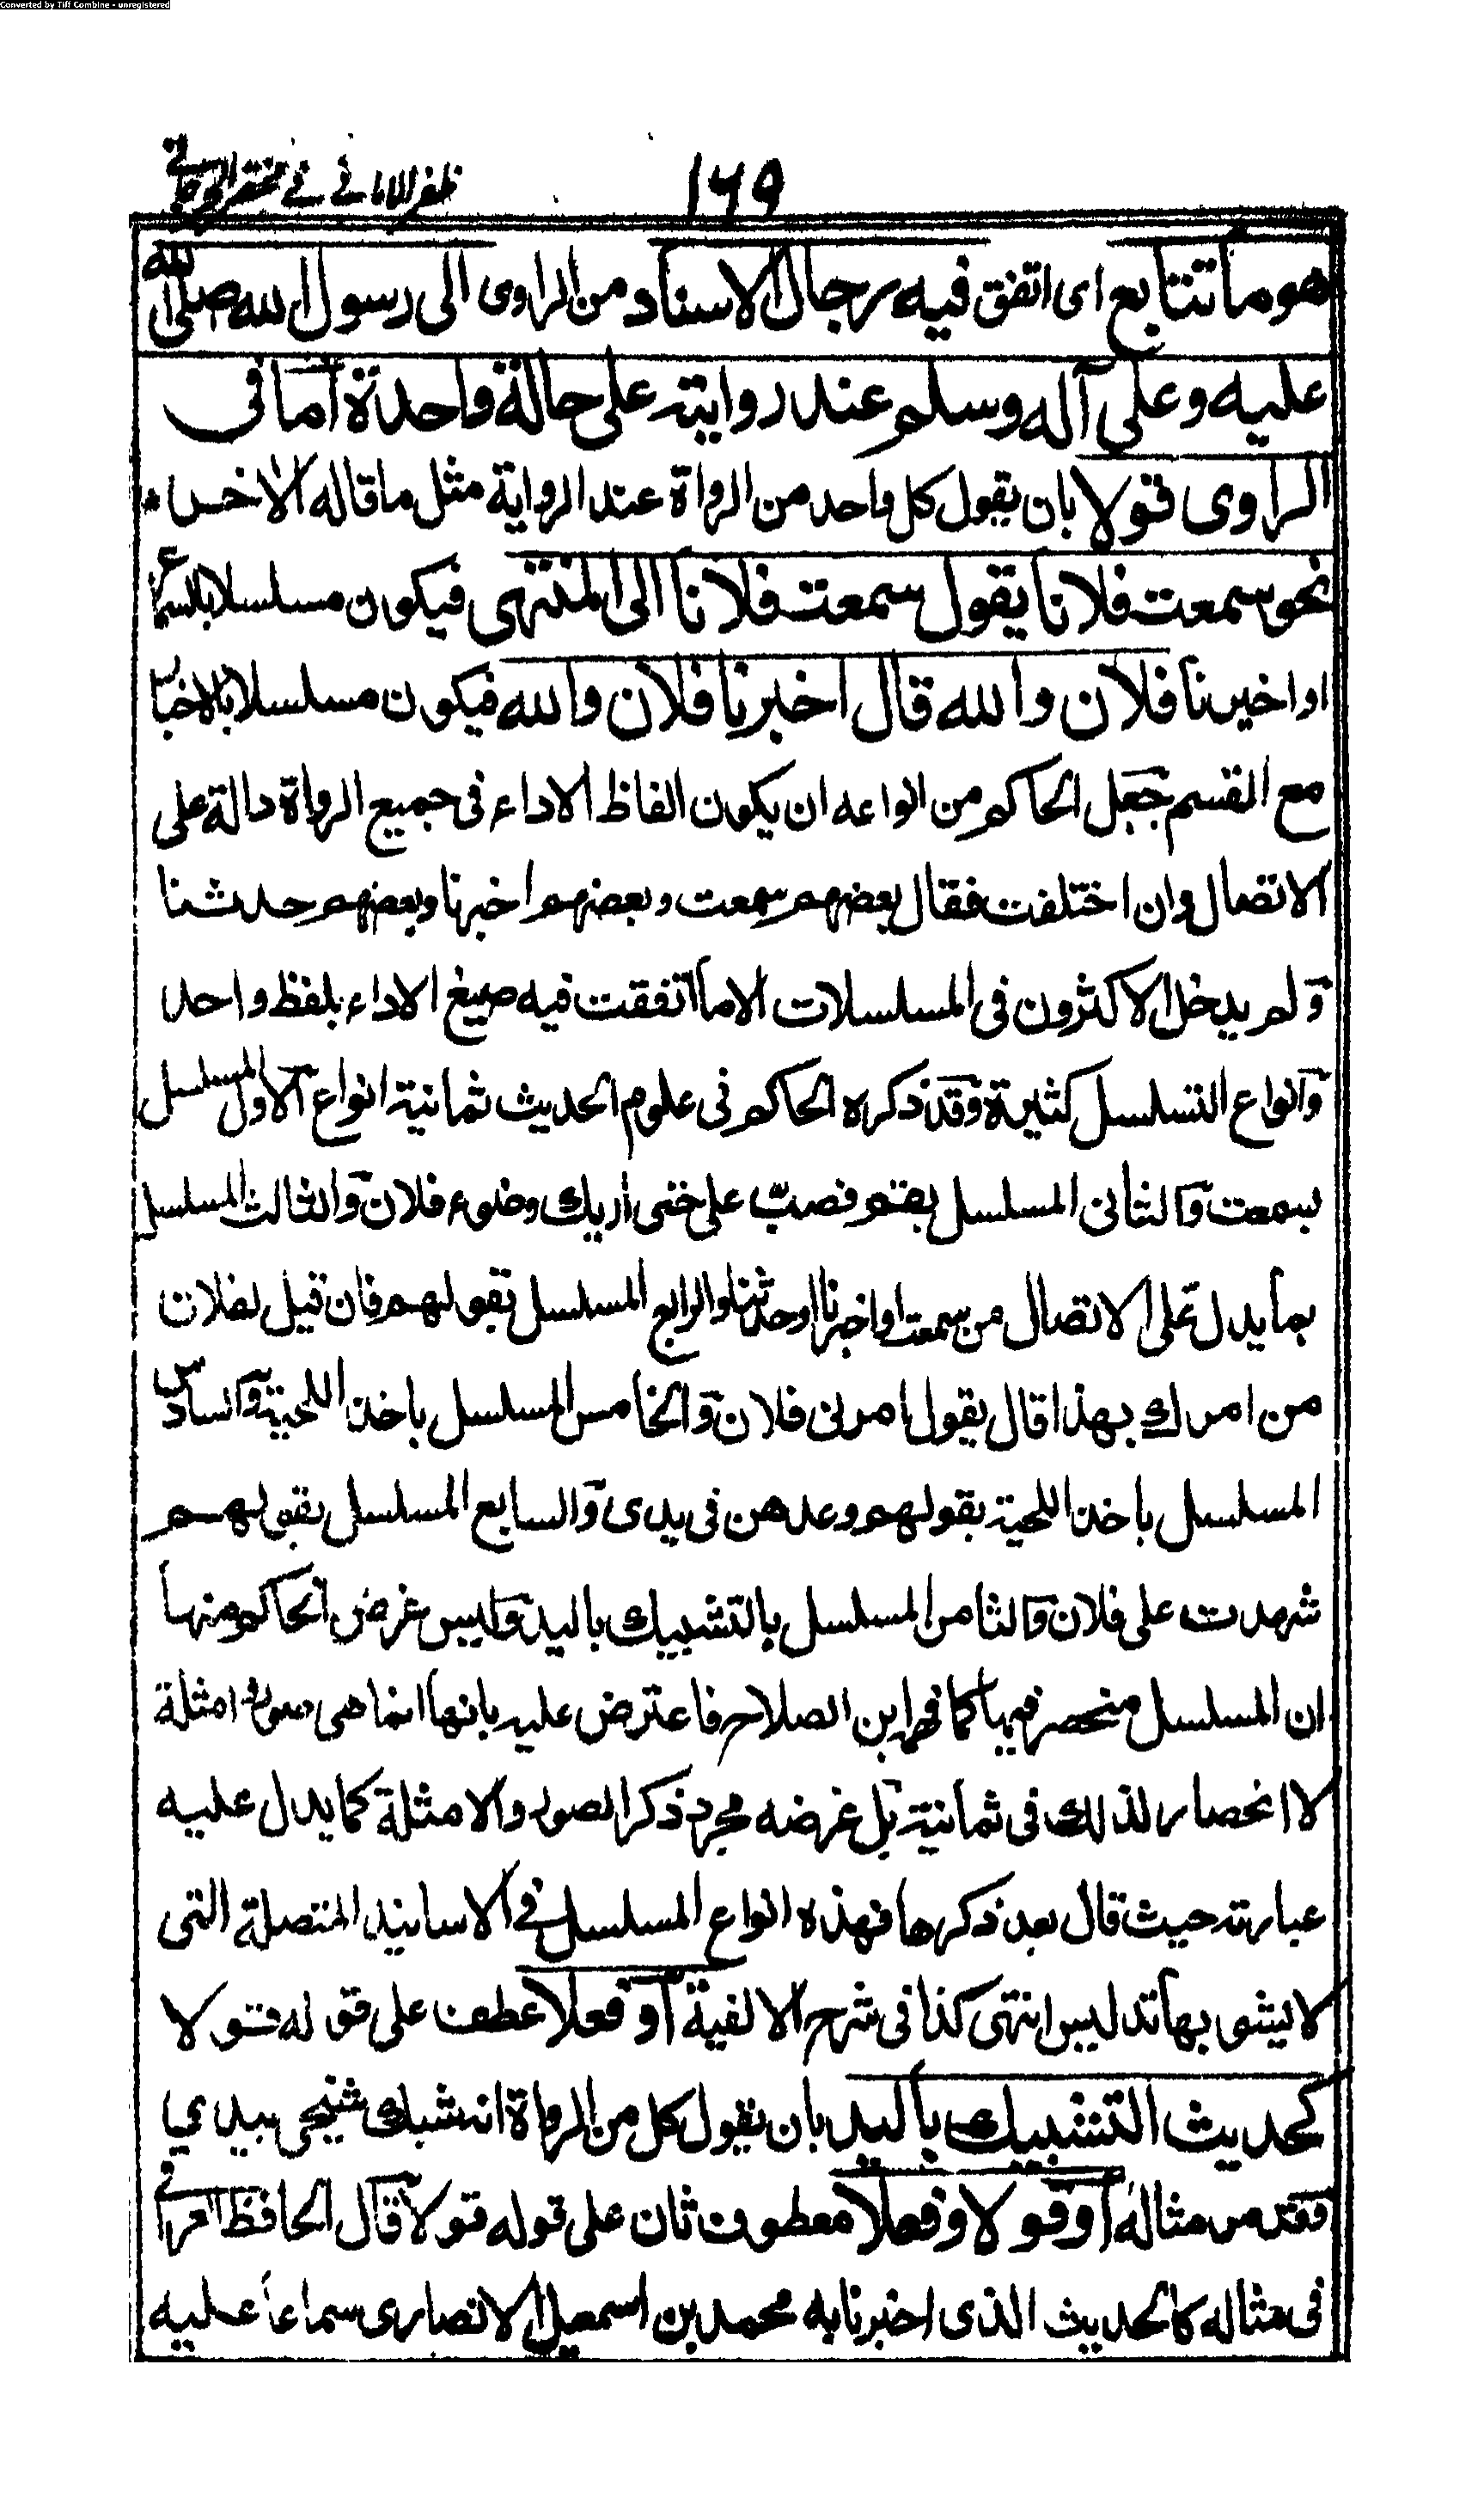 Converted by Tiff Combine - unregistered
١٦٩
ظفر الامانے فے مختصر الجرجانے
هو ما تتابع اى اتفق فيه رجال الاسناد من الراوى الى رسول الله صلى الله
عليه وعلى آله وسلم عند روايته على حالة واحدة اما فى
الراوى قولا بان يقول كل واحد من الرواة عند الرواية مثل ما قاله الآخر
نحو سمعت فلانا يقول سمعت فلانا الى المنتهى فيكون مسلسلا بالسماع
او اخبرنا فلان والله قال اخبرنا فلان والله فيكون مسلسلا بالاخبار
مع القسم جعل الحاكم من انواعه ان يكون الفاظ الاداء فى جميع الرواة دالة على
الاتصال وان اختلفت فقال بعضهم سمعت وبعضهم اخبرنا وبعضهم حدثنا
ولم يدخل الاكثرون فى المسلسلات الا ما اتفقت فيه صيغ الاداء بلفظ واحد
وانواع التسلسل كثيرة وقد ذكره الحاكم فى علوم الحديث ثمانية انواع الاول المسلسل
بسمعت والثانى المسلسل بقم فصب على حتى اريك وضوء فلان والثالث المسلسل
بما يدل على الاتصال من سمعت او اخبرنا او حدثنا والرابع المسلسل بقولهم فان قيل لفلان
من امرك بهذا قال يقول امرنى فلان والخامس المسلسل باخذ اللحية والسادس
المسلسل باخذ اللحية بقولهم وعدهن فى يدى والسابع المسلسل بقولهم
شهدت على فلان والثامن المسلسل بالتشبيك باليد وليس غرض الحاكم منها
ان المسلسل منحصر فيها كما فهم ابن الصلاح فاعترض عليه بانها انما هى صور وامثلة
لا انحصار لذلك فى ثمانية بل غرضه مجرد ذكر الصور والامثلة كما يدل عليه
عبارته حيث قال بعد ذكرها فهذه انواع المسلسل فے الاسانيد المتصلة التى
لا يشوبها تدليس انتهى كذا فى شرح الالفية او فعلا عطف على قوله قولا
كحديث التشبيك باليد بان يقول كل من الرواة انه شبك شيخى بيدي
فقد مر مثاله او قولا وفعلا معطوف ثان على قوله قولا قال الحافظ العراقے
فى مثاله كالحديث الذى اخبرنا به محمد بن اسمعيل الانصارى سماعا عليه